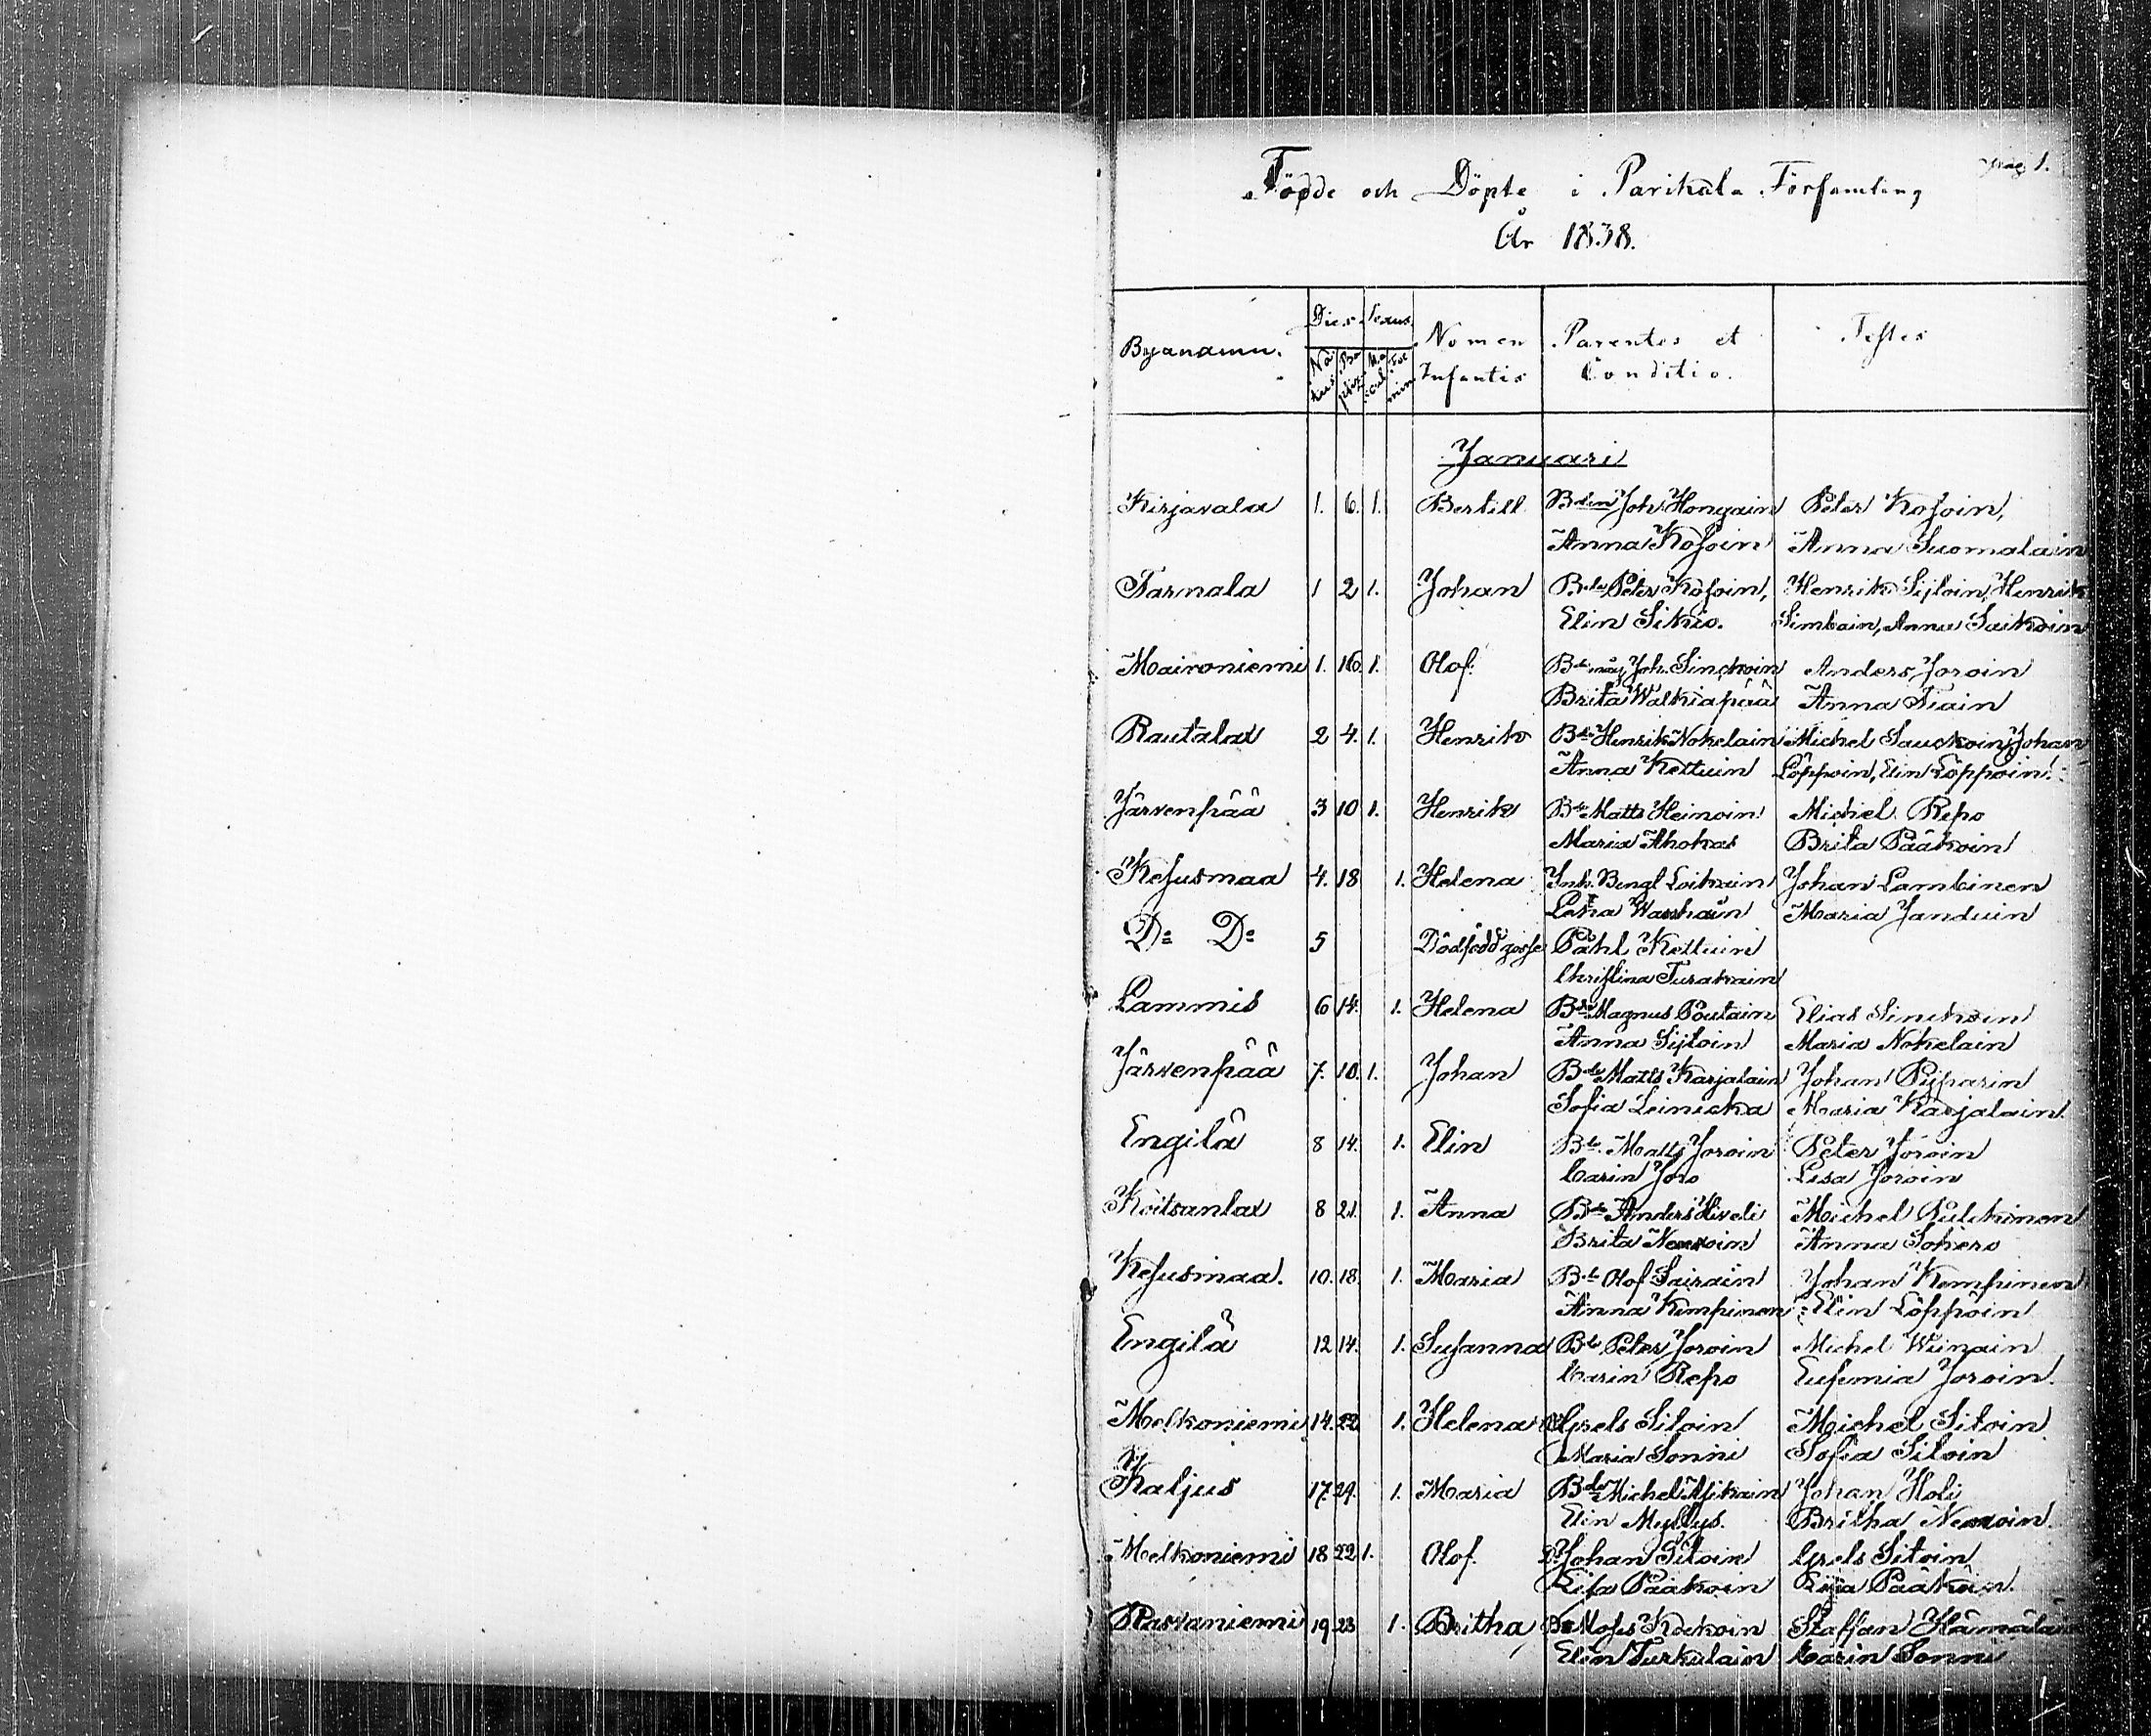 pag 1.
Födde och Döpte i Parikala Församling
År 1838.
Byanamn. Dies. Sexus. Nomen Infantis Parentes et Conditio. Testes
Natus Baptiz. Mascul Foemin
Januari
Kirjavala 1. 6. 1. Bertill Bden Joh. Hongain Peter Kosoin,
Anna Kosoin Anna Suomalain
Tarnala 1 2 1. Johan Bde Peter Kosoin, Henrik Sijloin, Henrik
Elin Sikiö. Simbain, Anna Saikoin
Maironiemi 1. 16. 1. Olof. Joh. Sinckoin Anders Joroin
Brita Walkiapää Anna Tiain
Rautalax 2 4. 1. Henrik Bde Henrik Nokelain Michel Sauckoin, Johan
Anna Kettuin Löppoin, Elin Löppoin.
Järvenpää 3 10 1. Henrik Bde Matts Heinoin Michel Repo
Maria Ahokas Brita Pääkoin
Kesusmaa 4. 18 1. Helena Inh. Bengt Loikain Johan Lambinen
Lena Maria Janduin
Do Do 5 Dödfödd gosse Påhl Kettuin
Christina Turakain
Lammis 6 14. 1. Helena Bde Magnus Poutain Elias Sinckoin
Anna Sijloin Maria Nokelain
Järvenpää 7. 10. 1. Johan Bde Matts Karjalain Johan Pijparin
Sofia Leinicka Maria Karjalain.
Engilä 8 14. 1. Elin Bde Matts Joroin Peter Joroin
Carin Joro Lisa Joroin
Koitsanlax 8 21. 1. Anna Bde Anders Hiveli Michel Pulckinen
Brita Nenoin Anna Sokero
Kesusmaa. 10. 18. 1. Maria Bde Olof Sairain Johan Kempinen
Anna Kimpinen Elin Löppöin
Engilä 12 14. 1. Susanna Bde Peter Joroin Michel Winain
Carin Repo Eufemia Joroin.
Melkoniemi 14. 22 1. Helena Grels Siloin Michel Siloin
Maria Sonni Sofia Siloin
Kaljus 17. 29. 1. Maria Bde Michel Äjikain Johan Holi
Elin Myllys. Britha Nenoin.
Melkoniemi 18 22 1. Olof. Johan Siloin Grels Siloin
Lisa Pääkoin Pääkoin.
Rasvaniemi 19 23 1. Britha Bde Moses Kockoin Staffan Hämäläin
Elin Turkulain Carin Sonni